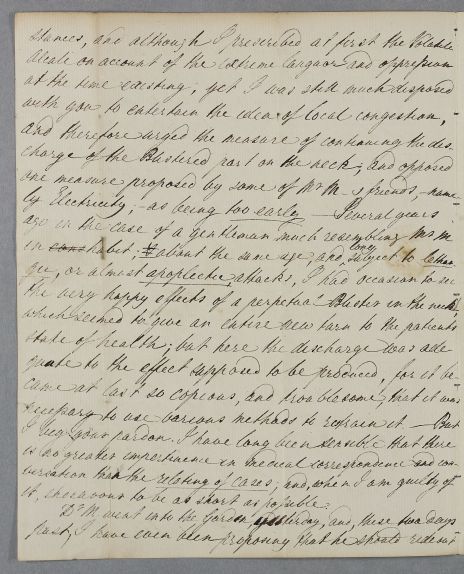 stances, and although I prescribed at first the Volatile
Alcali on account of the extreme languor and oppression
at the time existing; yet I was still much disposed
with you to entertain the idea of local congestion,
and therefore urged the measure of continuing the dis-
charge of the Blistered part on the neck; and opposed
one measure proposed by some of Mr M's friends, name-
ly Electricity; as being too early — Several years
ago in the case of a gentleman much resembling Mr M
in habit, & about the same age, and long subject to lethar-
gic, or almost apoplectic, attacks, I had occasion to see
the very happy effects of a perpetual Blister in the neck,
which seemed to give an entire new turn to the patients
state of health; but here the discharge was ade
quate to the effect supposed to be produced, for it be-
came at last so copious, and troublesome, that it was
necessary to use various methods to restrain it — But
I beg your pardon. I have long been sensible that there
is no greater impertinence in medical correspondence and con-
versation than the relating of cases; and, when I am guilty of
it, endeavour to be as short as possible.
Dr M. went into the Garden yesterday, and, these two days
past, I have even been proposing that he should ride out